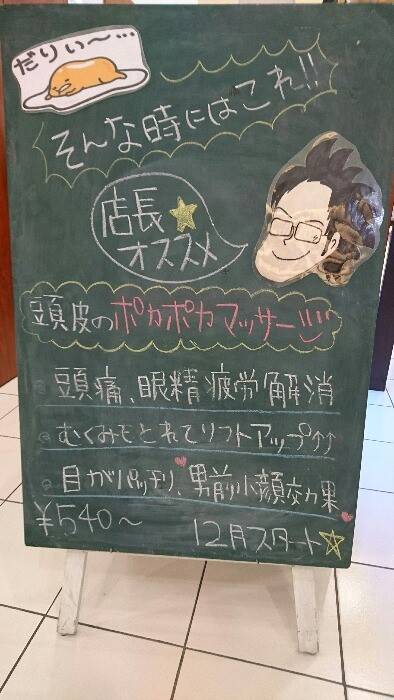 だりぃ〜…
そんな時にはこれ!!
店長★
オススメ
頭皮のポカポカマッサージ
頭痛、眼精疲労解消
むくみもとれてリフトアップ↑↑
目がパッチリ、男前小顔効果
¥540〜
12月スタート☆